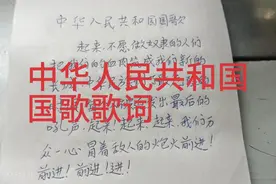 中华人民共和国国歌
起来,不愿做奴隶的人们
中华人民共和国
国歌歌词
最后的
吼声,起来!起来!起来,我们万
众一心冒着敌人的火包火前进!
前进!前进!进!